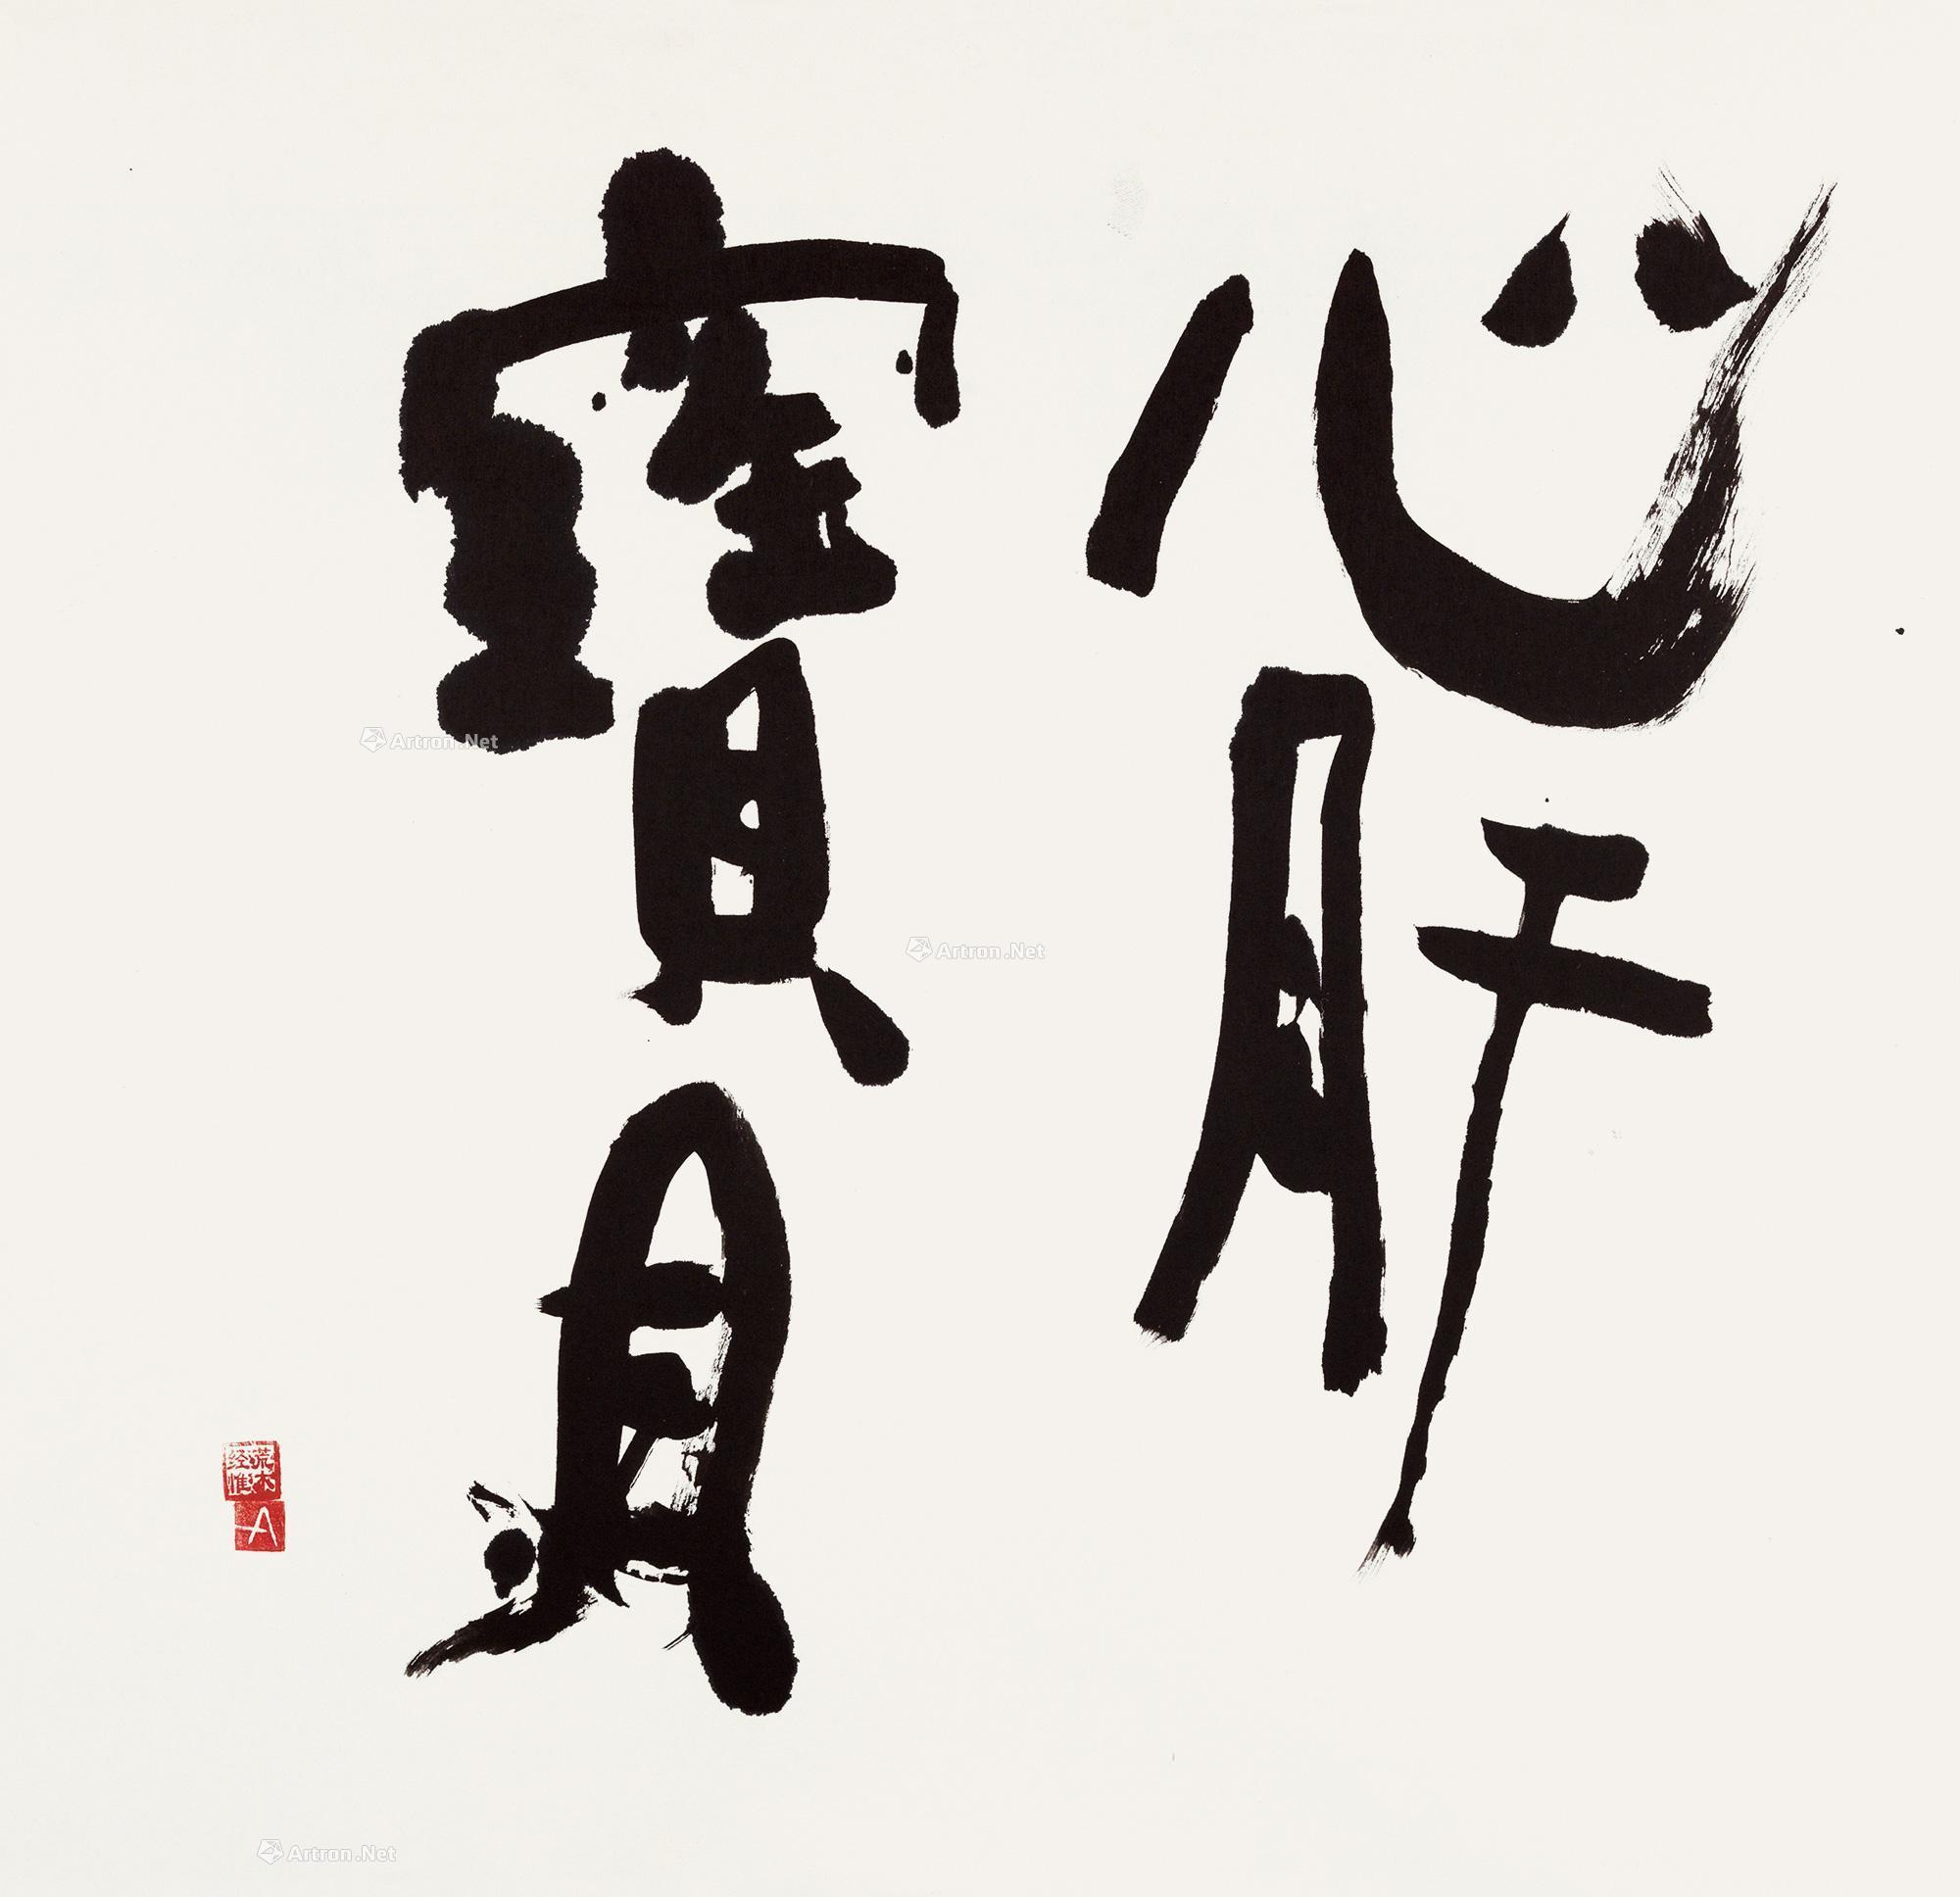 心肝
寶貝
荒木
经惟
A
Artron.Net
Artron.Net
Artron.Net